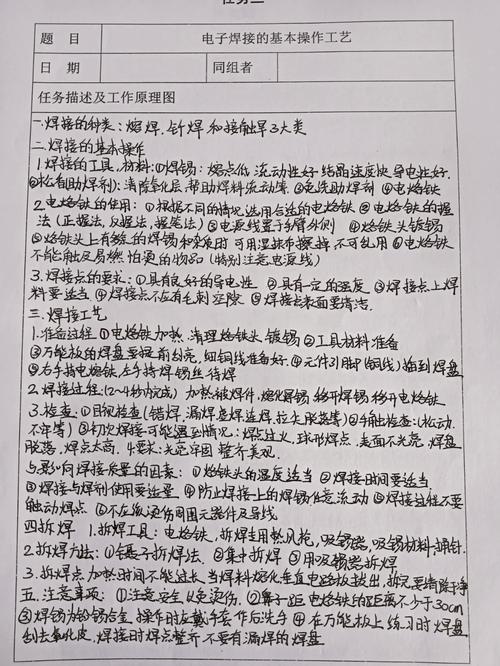 题 目 电子焊接的基本操作工艺
日 期 同组者
任务描述及工作原理图
一.焊接的种类:熔焊、钎焊和接触焊3大类
二.焊接的基本操作
1.焊接的工具,材料:①焊锡:熔点低 流动性好 结晶速度快 导电性好.
②松香(助焊剂):清除氧化层,帮助焊料流动等 ③免洗助焊剂 ④电烙铁
2.电烙铁的使用:①根据不同的情况选用合适的电烙铁 ②电烙铁的握
法(正握法,反握法,握笔法)③电源线置于手臂外侧 ④烙铁头镀锡
⑤烙铁头上有多余的焊锡和杂质时 可用湿抹布擦掉,不可乱甩 ⑥电烙铁
不能触及易燃怕烫的物品(特别注意电源线)
3.焊接点的要求:①具有良好的导电性 ②具有一定的强度 ③焊接点上焊
料要适当 ④焊接点不应有毛刺空隙 ⑤焊接点表面要清洁.
三.焊接工艺
1.准备过程 ①电烙铁加热.清理烙铁头 镀锡 ②工具材料准备
③万能板的焊盘要提前刮亮,细铜线准备好.④元件引脚(铜线)插到焊盘
⑤右手持电烙铁 左手持焊锡丝待焊
2.焊接过程:(2~4秒内完成) 加热被焊件,熔化焊锡 移开焊锡 移开电烙铁
3.检查:①目视检查(错焊 漏焊 虚焊 连焊,拉尖 脱落等)②手触检查:(松动.
不牢等) ③初次焊接可能遇到情况:焊点过火,球形焊点 表面不光亮,焊盘
脱落,焊点太高.4.要求:光亮牢固 整齐美观.
与影响焊接质量的因素:①烙铁头的温度适当 ②焊接时间要适当
③焊接与焊剂使用要适量 ④防止焊接上的焊锡任意流动 ⑤焊接过程不要
触动焊点 ⑥不在烫伤周围元器件及导线
四拆焊 1.拆焊工具:电烙铁,拆焊专用热风枪,吸锡器,吸锡材料,捅针.
2.拆焊方法:①镊子拆焊法.②集中拆焊 ③用吸锡器拆焊
3.拆焊点加热时间不能过长 当焊料熔化垂直电路板拔出,拆完要清除干净
五.注意事项:①注意安全以免烫伤.②鼻子距电烙铁的距离不少于30cm
③焊锡为铅锡合金 操作时应戴手套作后洗手 ④在万能板上练习时焊盘
刮去氧化皮,焊接时焊点整齐 不要有漏焊的焊盘